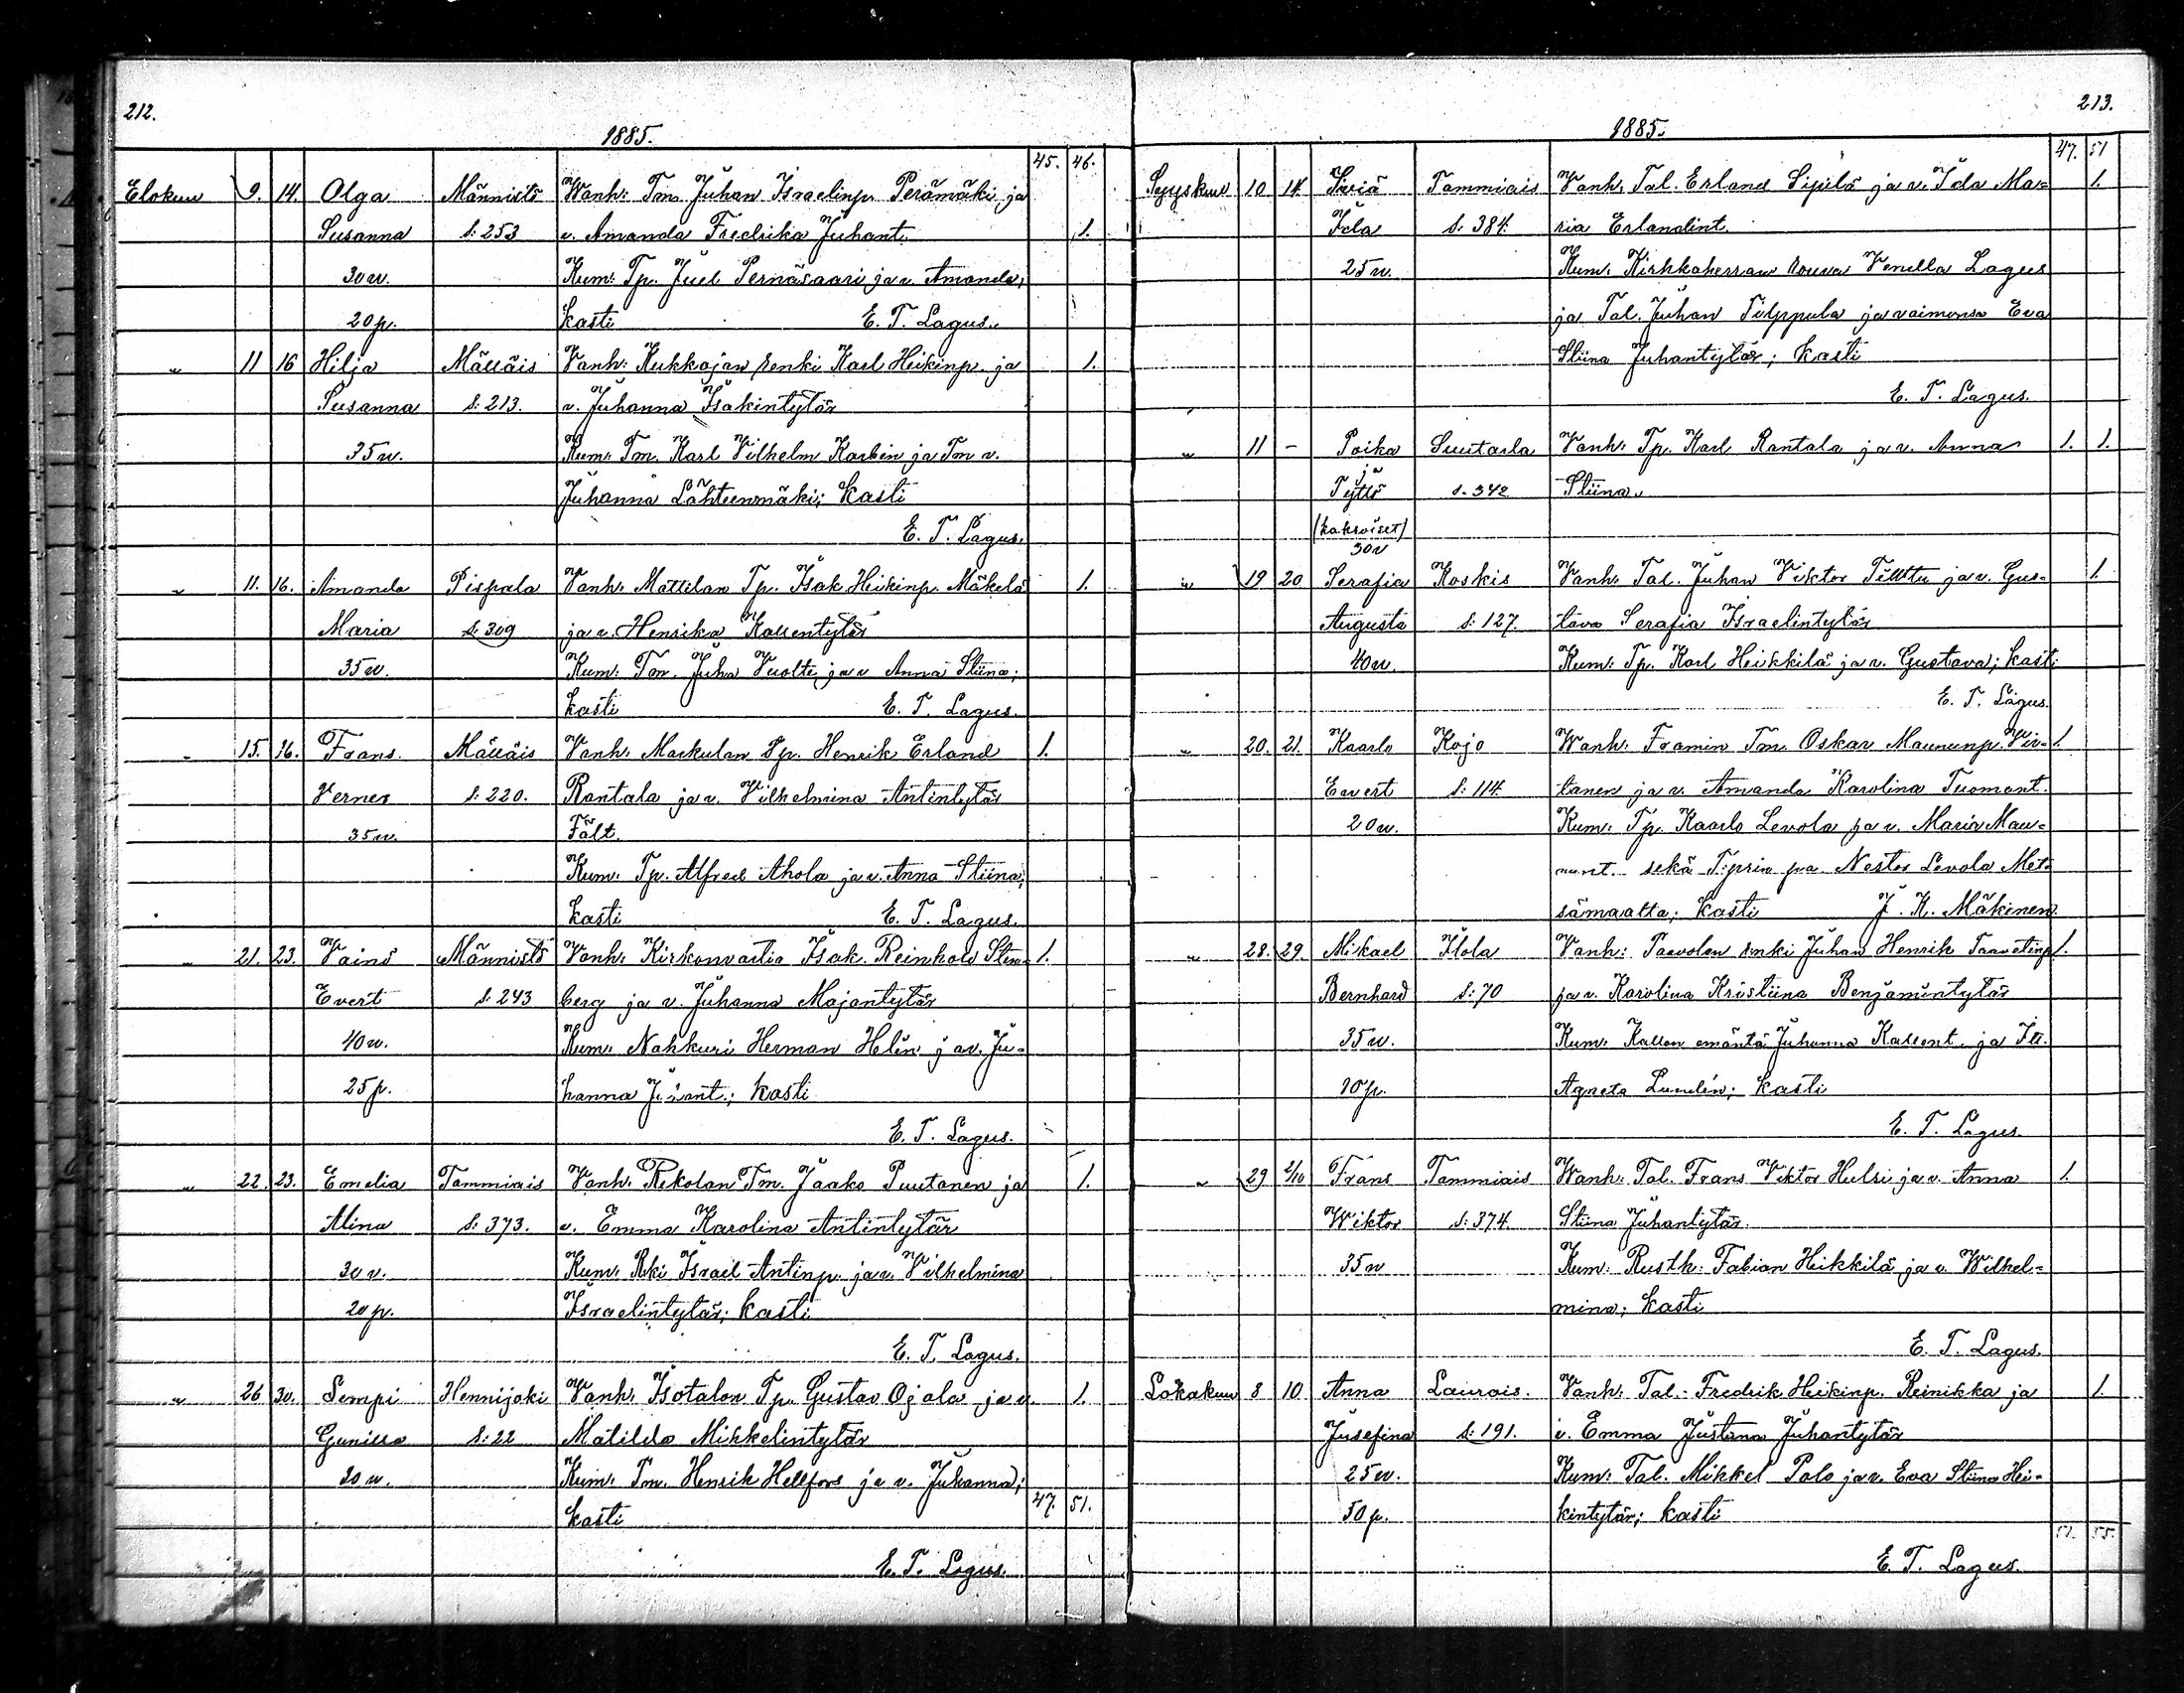 212.
1885.
45. 46.
Elokuu 9. 14. Olga Männistö Wanh: Tm. Juhan Israelinp. Perämäki ja
Susanna s: 253 v. Amanda Fredrika Juhant. 1.
30 v. Kum: Tp. Juel Pernäsaari ja v. Amanda;
20 p. kasti E. T. Lagus.
" 11 16 Hilja Mälläis Vanh: Kukkojan renki Karl Heikinp. ja 1.
Susanna s: 213. v. Juhanna Isakintytär
35 v. Kum: Tm. Karl Vilhelm Karlin ja Tm v.
Juhanna Lähteenmäki; kasti
E. T. Lagus.
" 11. 16. Amanda Pispala Vanh: Mattilan Tp. Isak Heikinp. Mäkelä 1.
Maria s: 309 ja v. Henrika Kallentytär
35 v. Kum: Tm. Juha Vuolte ja v Anna Stiina;
kasti E. T. Lagus.
" 15. 16. Frans Mälläis Vanh: Markulan Tp. Henrik Erland 1.
Verner s: 220. Rantala ja v. Vilhelmina Antintytär
35 v. Fält.
Kum: Tp. Alfred Ahola ja v. Anna Stiina;
kasti E. T. Lagus.
" 21. 23. Väinö Männistö Vanh: Kirkonvartia Isak Reinhold Sten- 1.
Evert s: 243 berg ja v. Juhanna Majantytär
40 v. Kum: Nahkuri Herman Helin ja v. Ju-
25 p. hanna ; kasti
E. T. Lagus.
" 22. 23. Emelia Tammiais Vanh: Rekolan Tm. Jaako Puutanen ja 1.
Alina s: 373. v. Emma Karolina Antintytär
30 v. Kum: Rki Israel Antinp. ja v. Vilhelmina
20 p. Israelintytär; kasti
E. T. Lagus.
" 26 30. Lempi Hennijoki Vanh: Isotalon Tp. Gustav Ojala ja v. 1.
Gunilla s: 22 Matilda Mikkelintytär
30 v. Kum: Tm. Henrik Hellfors ja v. Juhanna;
kasti 47. 51.
E. T. Lagus.
213.
1885.
47. 51
Syyskuu 10 14. Siviä Tammiais Vanh: Tal. Erland Sipilä ja v. Ida Ma- 1.
Ida s. 384. ria Erlandint.
25 v. Kum: Kirkkoherran rouva Vendla Lagus
ja Tal. Juhan Tilppula ja vaimonsa Eva
Stiina Juhantytär; kasti
E. T. Lagus.
" 11 - Poika Suutarla Vanh: Tp. Karl Rantala ja v. Anna 1. 1.
ja
Tyttö s. 342 Stiina.
(kaksoiset)
30 v
" 19 20 Serafia Koskis Vanh: Tal. Juhan Viktor Tilttu ja v. Gus- 1.
Augusta s: 127. tava Serafia Israelintytär
40 v. Kum: Tp. Karl Heikkilä ja v. Gustava; kasti
E. T. Lagus.
" 20. 21. Kaarlo Kojo Wanh: Framin Tm. Oskar Maununp. Vir- 1.
Evert s: 114. tanen ja v. Amanda Karolina Tuomant.
20 v. Kum: Tp. Kaarlo Levola ja v. Maria Mau-
nunt. sekä Nestor Levola Met-
sämaalta; kasti J. K. Mäkinen.
" 28. 29. Mikael Ilola Vanh: Paavolan renki Juhan Henrik Taavetinp. 1.
Bernhard s: 70 ja v. Karolina Kristiina Benjamintytär
35 v. Kum: Kallon emäntä Juhanna Kallent. ja Itl.
10 p. Agneta Lundén; kasti
E. T. Lagus.
" 29 2/10 Frans Tammiais Wanh: Tal. Frans Viktor Hulsi ja v. Anna 1.
Wiktor s: 374. Stiina Juhantytär.
35 v Kum: Rusth: Fabian Heikkilä ja v. Wilhel-
mina; kasti
E. T. Lagus.
Lokakuu 8 10. Anna Laurois. Vanh: Tal. Fredrik Heikinp. Reinikka ja 1.
Jusefina s: 191. v. Emma Justana Juhantytär
25 v. Kum: Tal. Mikkel Polo ja v. Eva Stiina Hei-
50 p. kintytär; kasti
51. 55.
E. T. Lagus.